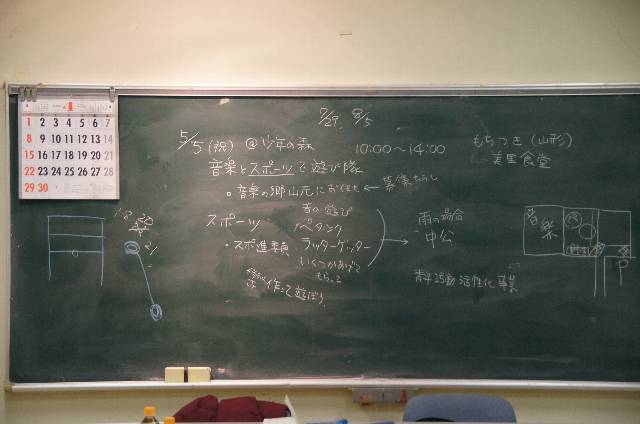 4
1 2 3 4 5 6 7
8 9 10 11 12 13 14
15 16 17 18 19 20 21
22 23 24 25 26 27 28
29 30
7/29, 8/5
5/5 (祝) @少年の森 10:00~14:00
もちつき (山形)
美里食堂
音楽とスポーツで遊び隊
音楽の郷山元にお任せ ←
昔の遊び
スポーツ ペタンク
・スポ進委員 ラダーゲッター
いくつかあげて
もらって
作って遊ぼう
雨の場合
中公
青年活動活性化事業
音楽
P